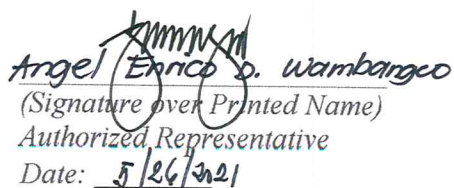 Angel Enrico D. Wambangco
(Signature over Printed Name)
Authorized Representative
Date: 5/26/2021